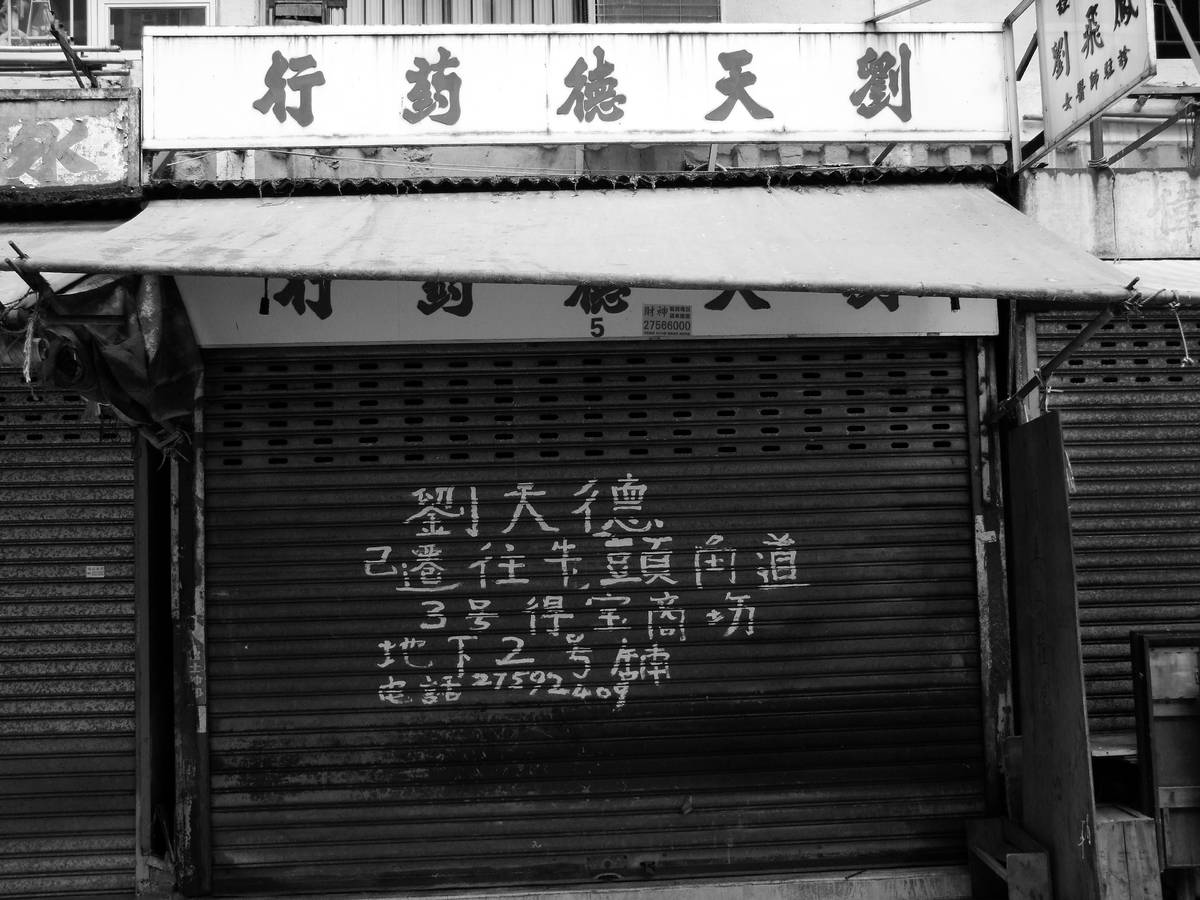 劉天德葯行
劉飛鳳
女醫師駐診
水
劉天德葯行
5
財神
27566000
劉天德
己遷往牛頭角道
3号得宝商场
地下2号舖
电話27592409